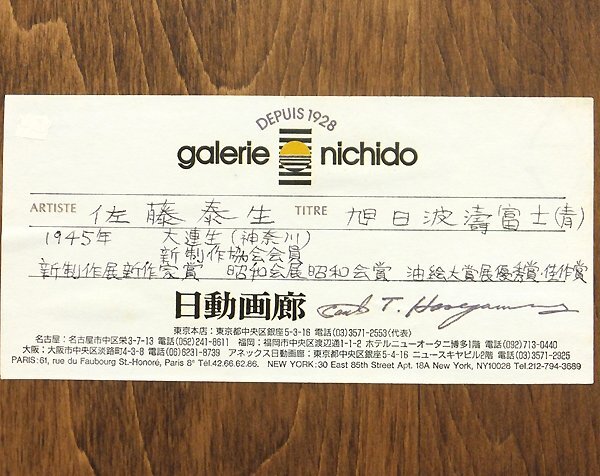 DEPUIS 1928
galerie nichido
ARTISTE 佐藤泰生 TITRE 旭日波濤富士(青)
1945年 大連生(神奈川)
新制作協会会員
新制作展新作家賞 昭和会展昭和会賞 油絵大賞展優秀賞・佳作賞
日動画廊 T. Hasegawa
東京本店:東京都中央区銀座5-3-16 電話(03)3571-2553(代表)
名古屋:名古屋市中区栄3-7-13 電話(052)241-8611 福岡:福岡市中央区渡辺通1-1-2 ホテルニューオータニ博多1階 電話(092)713-0440
大阪:大阪市中央区淡路町4-3-8 電話(06)6231-8739 アネックス日動画廊:東京都中央区銀座5-4-16 ニュースキヤビル2階 電話(03)3571-2925
PARIS:61, rue du Faubourg St-Honoré, Paris 8e Tél.42.66.62.86. NEW YORK:30 East 85th Street Apt. 18A New York, NY10028 Tel.212-794-3689